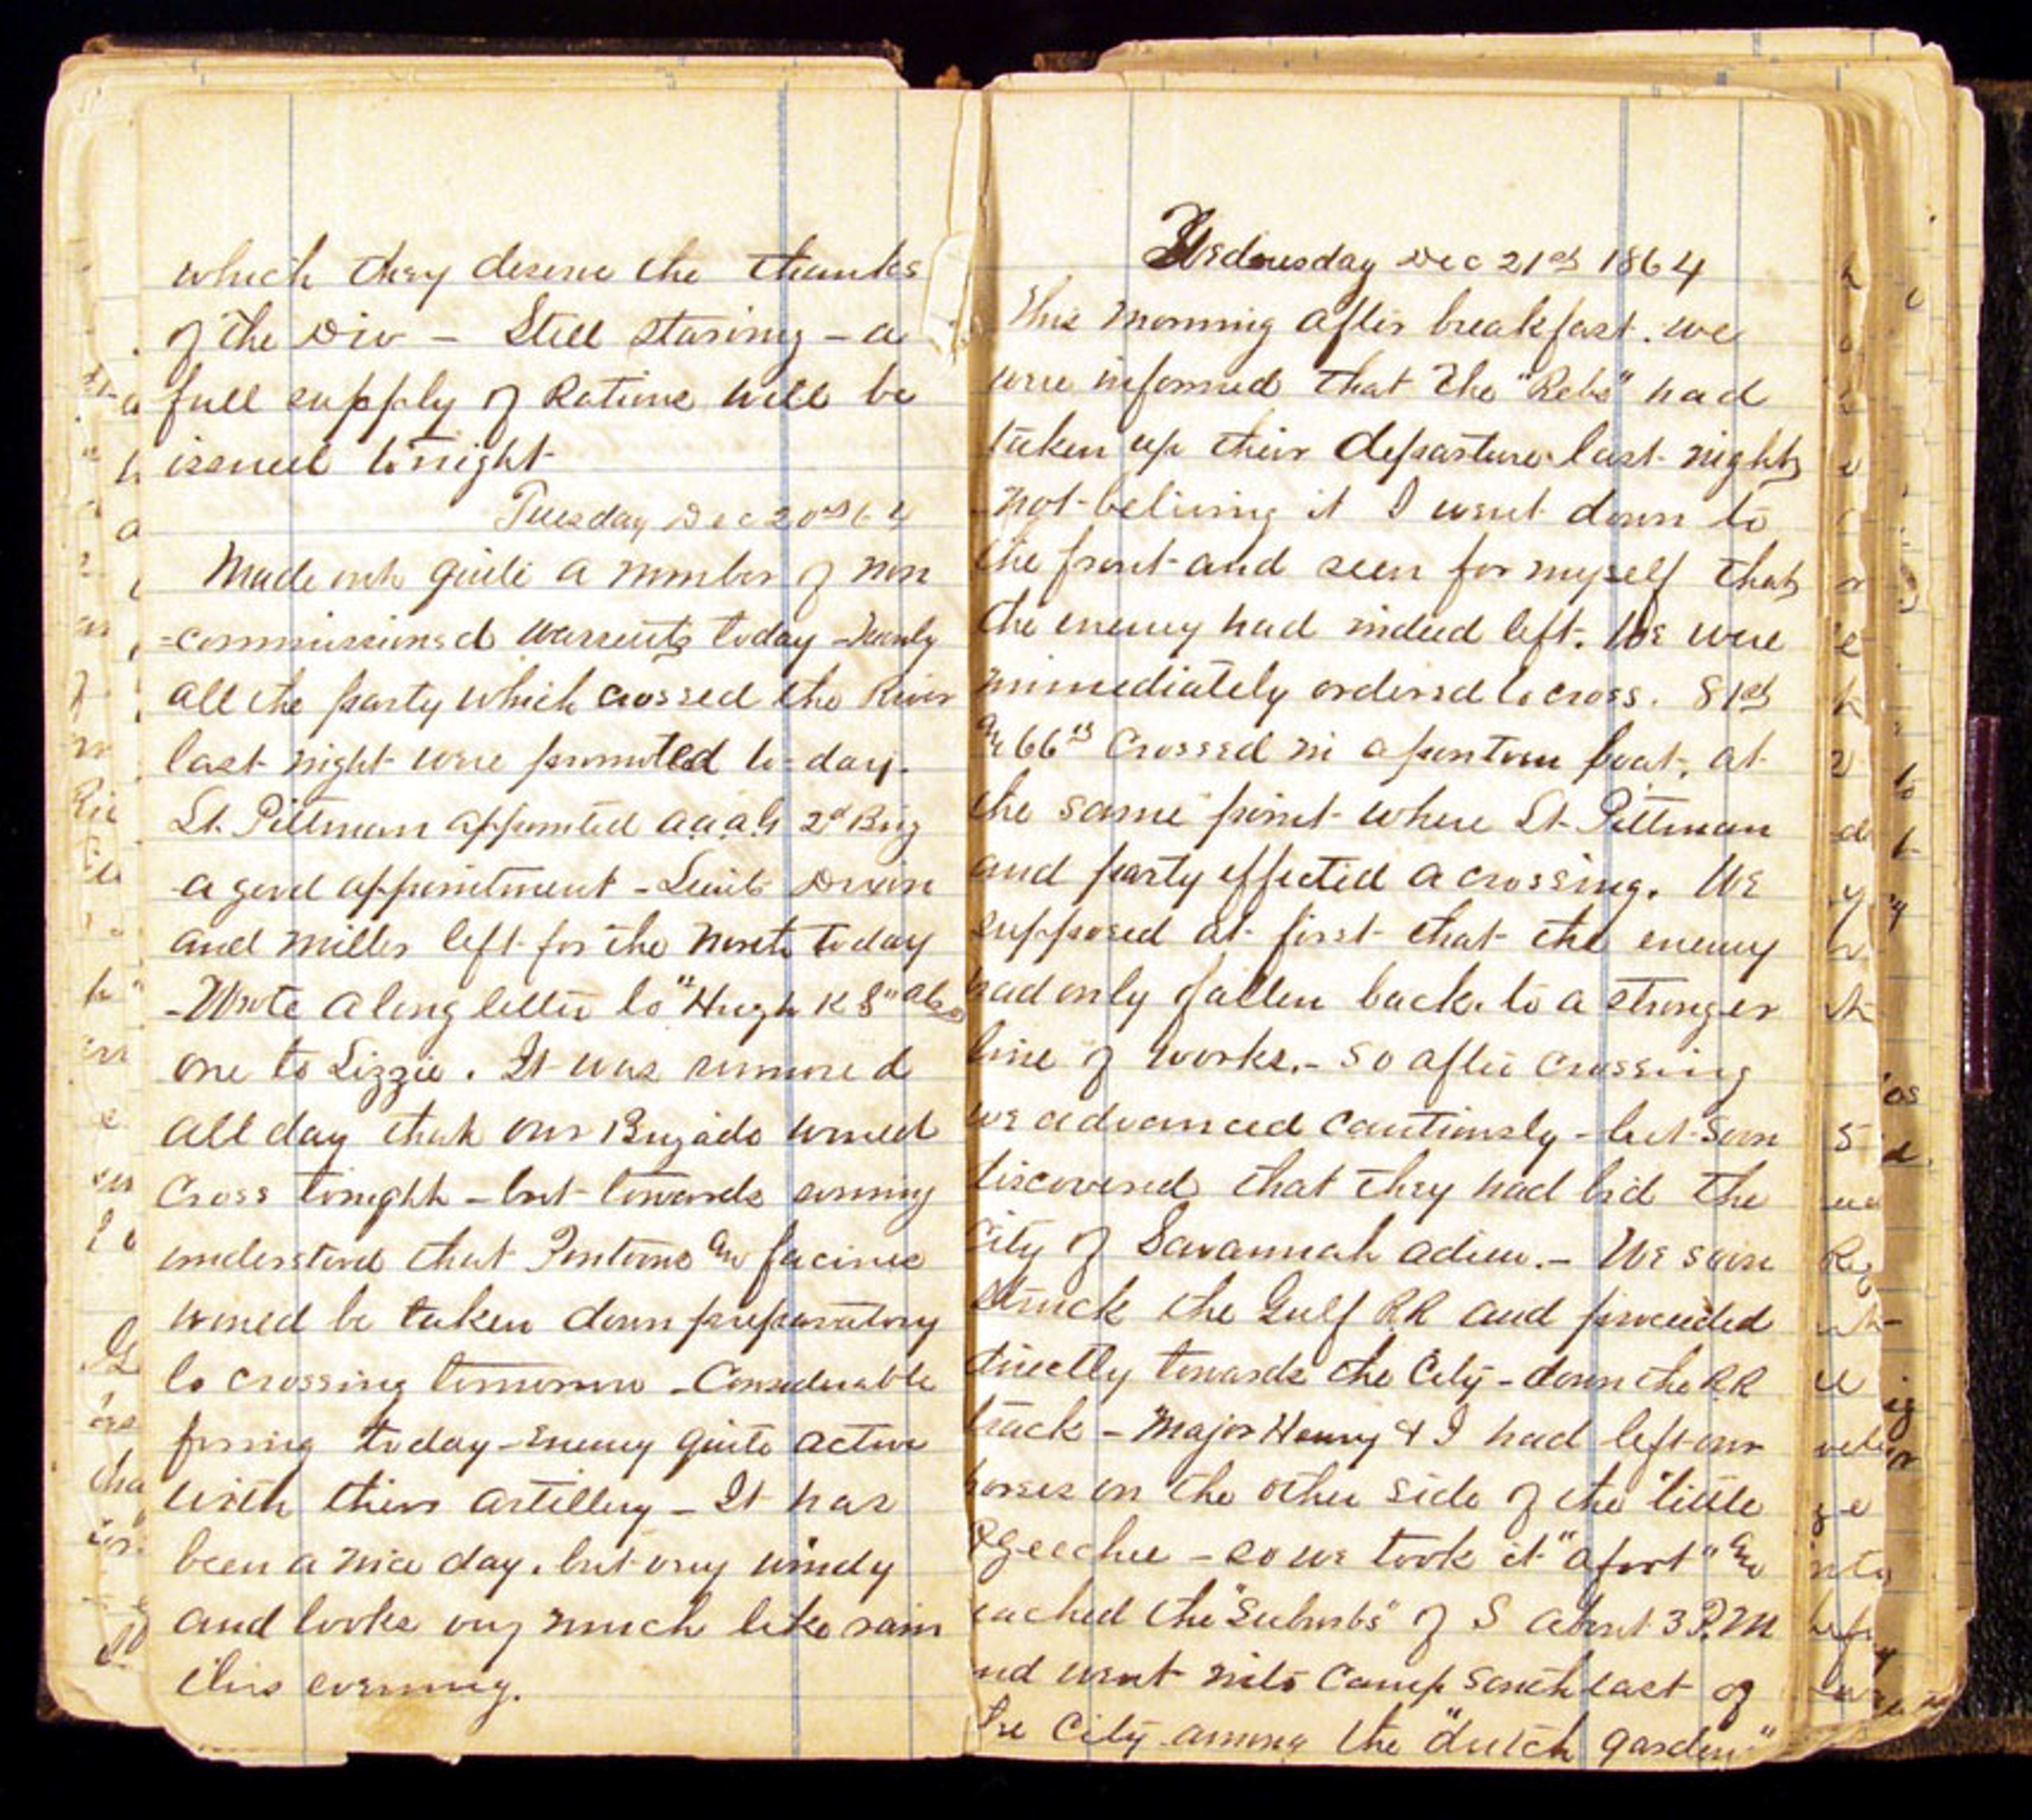 which they deserve the thanks
of the Div – Still starving – a
full supply of Rations will be
issued tonight
Tuesday Dec 20th 64
Made out quite a number of non
=commissioned warrents today – Nearly
all the party which crossed the River
last night were promoted to-day.
Lt. Pittman appointed a.a.a.G 2d Brig
– a good appointment – Lieuts Dixon
and Miller left for the North today
– Wrote a long letter to "Hugh K S" also
one to Lizzie. It was rumored
all day that our Brigade would
cross tonight – but towards evening
understood that Pontoons & facines
would be taken down preparatory
to crossing tomorrow – Considerable
firing today – enemy quite active
with their artillery – It has
been a nice day, but very windy
and looks very much like rain
this evening.
Wednesday Dec 21st 1864
This morning after breakfast. we
were informed that the "Rebs" had
taken up their departure last night
not believing it I went down to
the front and seen for myself that
the enemy had indeed left. We were
immediately ordered to cross. 81st
& 66th crossed in a pontoon boat, at
the same point where Lt. Pittman
and party effected a crossing. We
supposed at first that the enemy
had only fallen back to a stronger
line of works. – So after crossing
we advanced cautiously – but soon
discovered that they had bid the
City of Savannah adieu. – We soon
struck the Gulf RR and proceeded
directly towards the City – down the RR
track – Major Henry & I had left our
horses on the other side of the little
Ogeechee – so we took it "afoot" &
reached the "Suburbs" of S about 3 P.M
and went into Camp South east of
the City among the "dutch gardens"